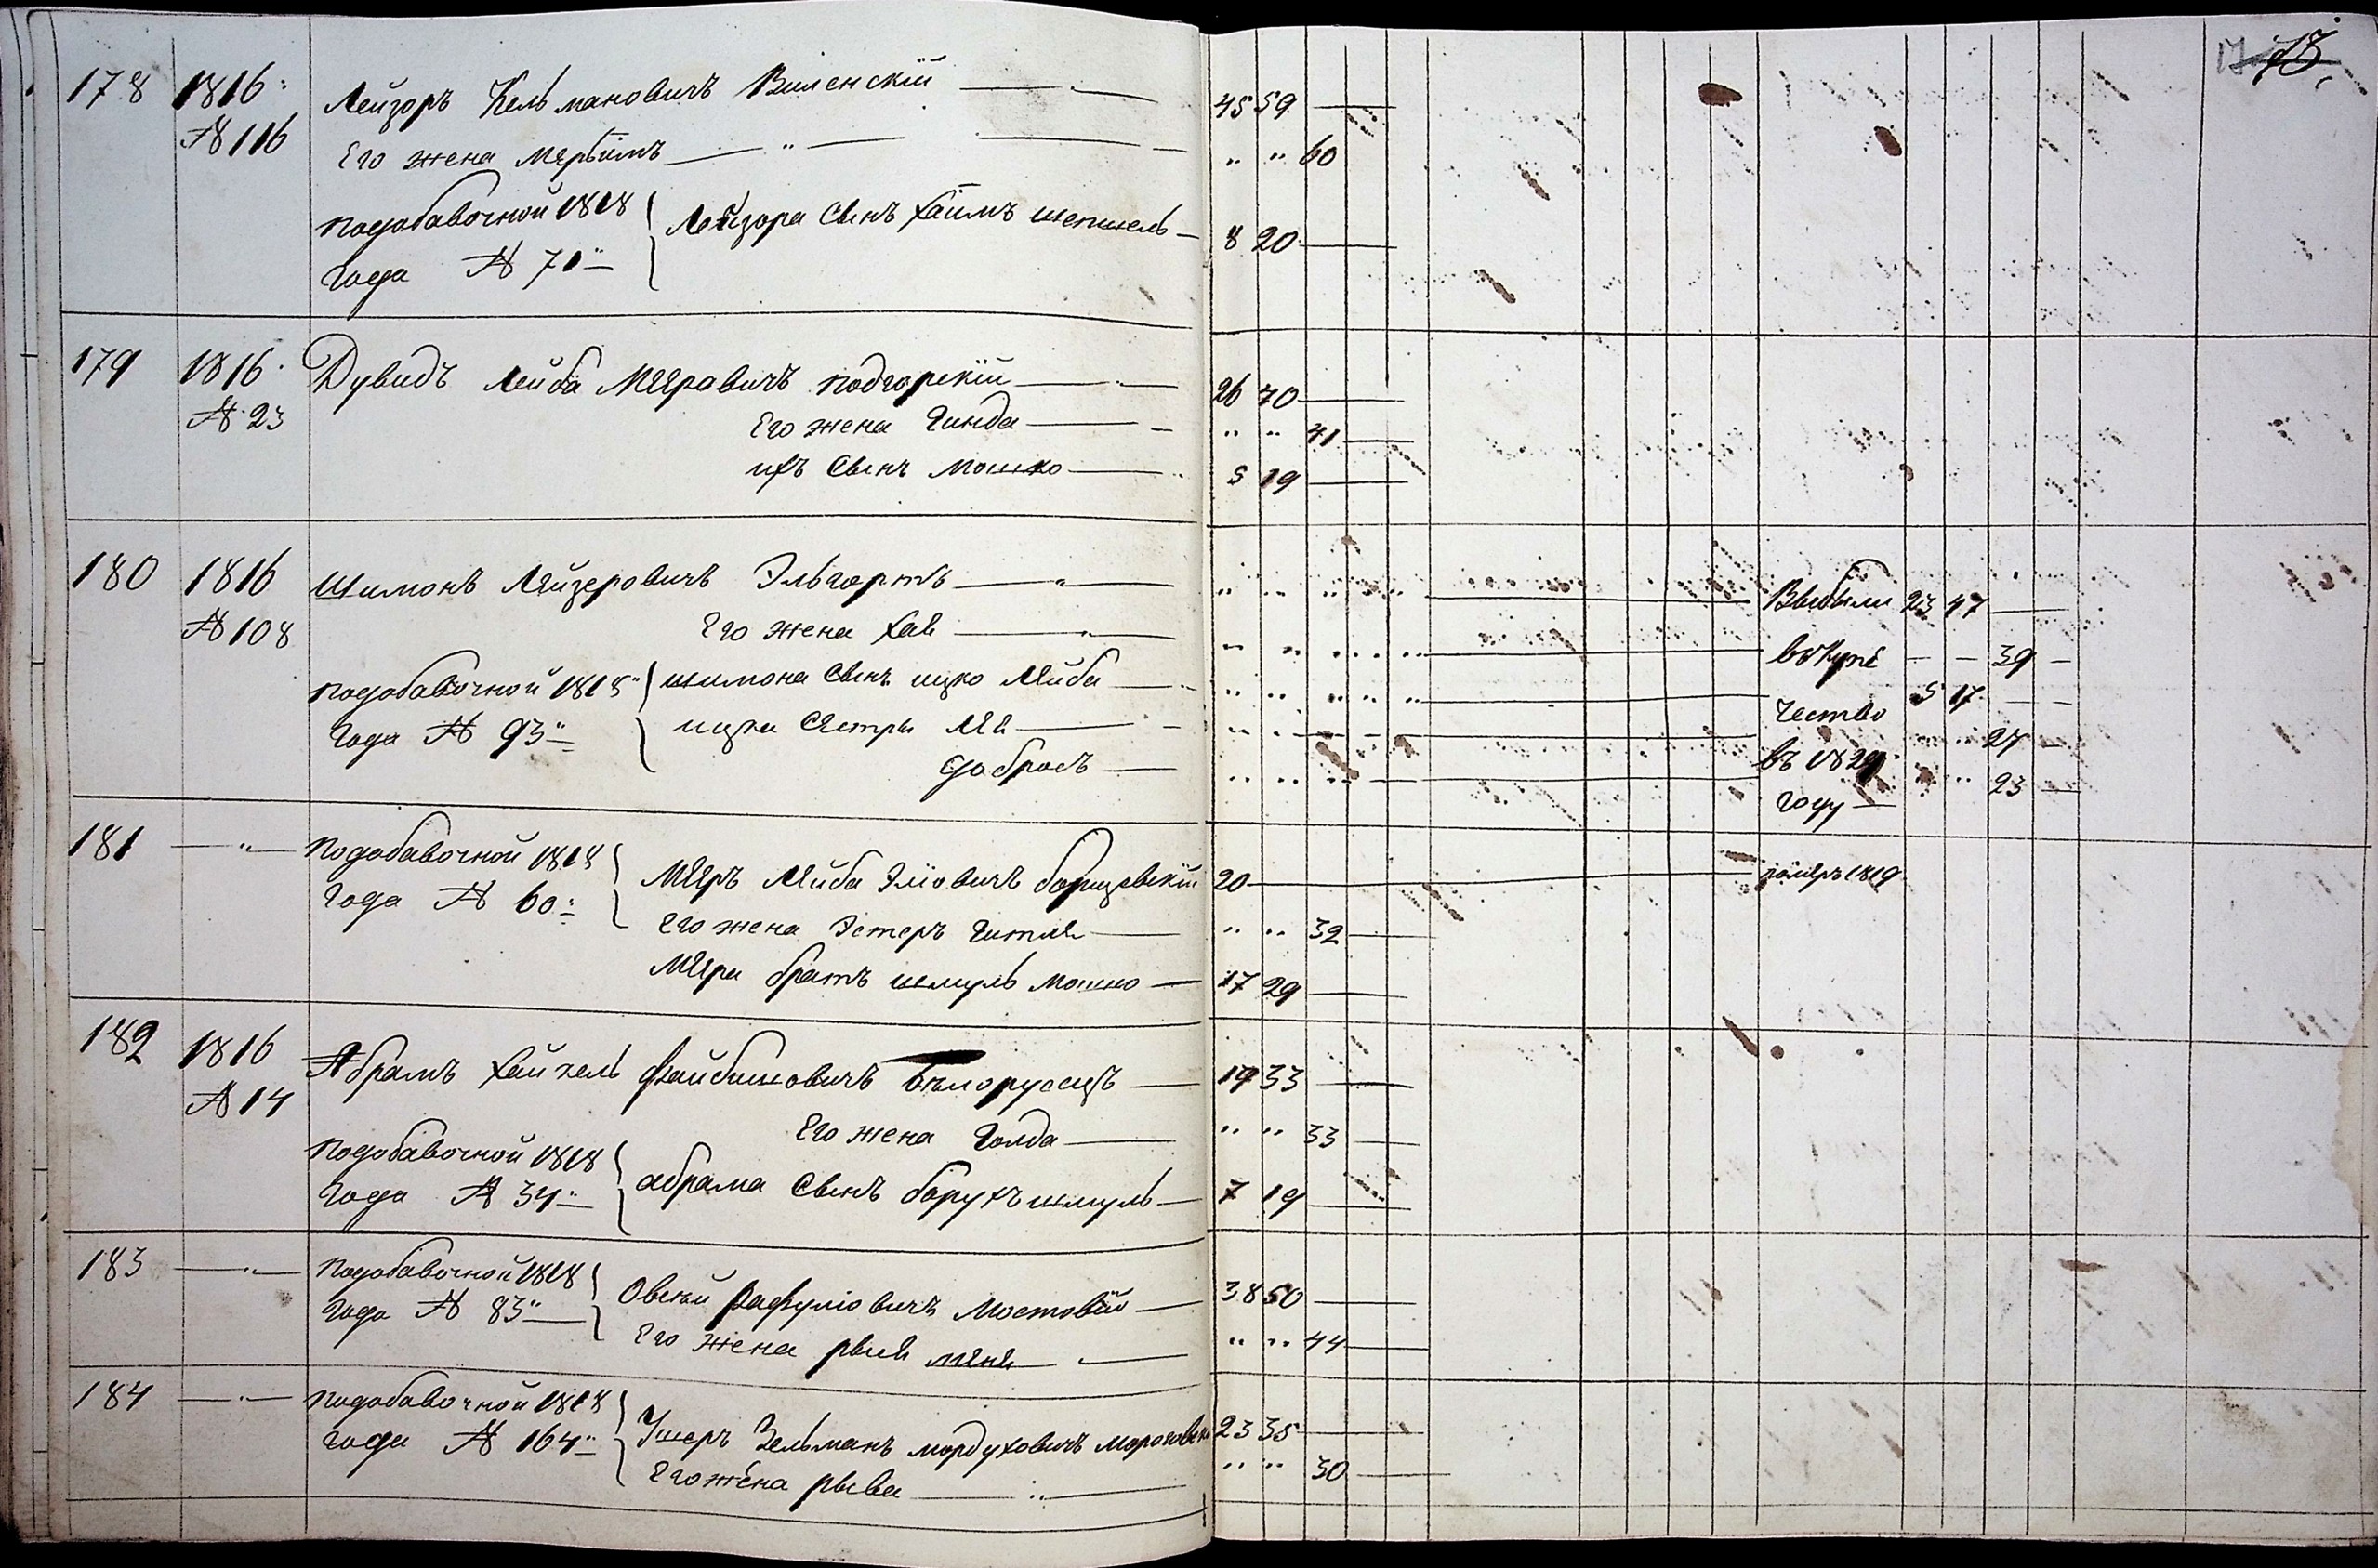 178 1816 № 116 Лейзоръ Кельмановичъ Виленскій 45 59
Его жена Мерьимъ " " 60
подобавочной 1818 Лейзора Сынъ Хаимъ шепшель 8 20
Года № 71
179 1816 № 23 Дувидъ Лейба Меровичъ подгорскій 26 40
Его жена Гинда " " 41
ихъ Сынъ Мошко 5 19
180 1816 № 108 Шимонъ Лейзеровичъ Эльгортъ Выбыли 23 47
Его жена Хая въ купе 39
подобавочной 1818 шимона Сынъ ицко Лейба чество 5 17
Года № 93 ицка Сестры Лея въ 1829 27
добрась году 23
181 подобавочной 1818 Меръ Лейба Эліовичъ борщевскій 20 помѣръ 1819
Года № 60 Его жена Эстеръ Гитля " " 32
Мера братъ шмуль Мошко 17 29
182 1816 № 14 Абрамъ Хайкель Файбишовичъ Бѣлоруссцъ 19 33
Его жена Голда " " 33
подобавочной 1818 абрама Сынъ борухъ шмуль 7 19
Года № 34
183 подобавочной 1818 Овсѣй Рафуліовичъ Мостовой 38 50
Года № 83 Его жена рыся " " 44
184 подобавочной 1818 Ушеръ Зельманъ мордуховичъ 23 35
года № 164 Его жена рыва " " 30